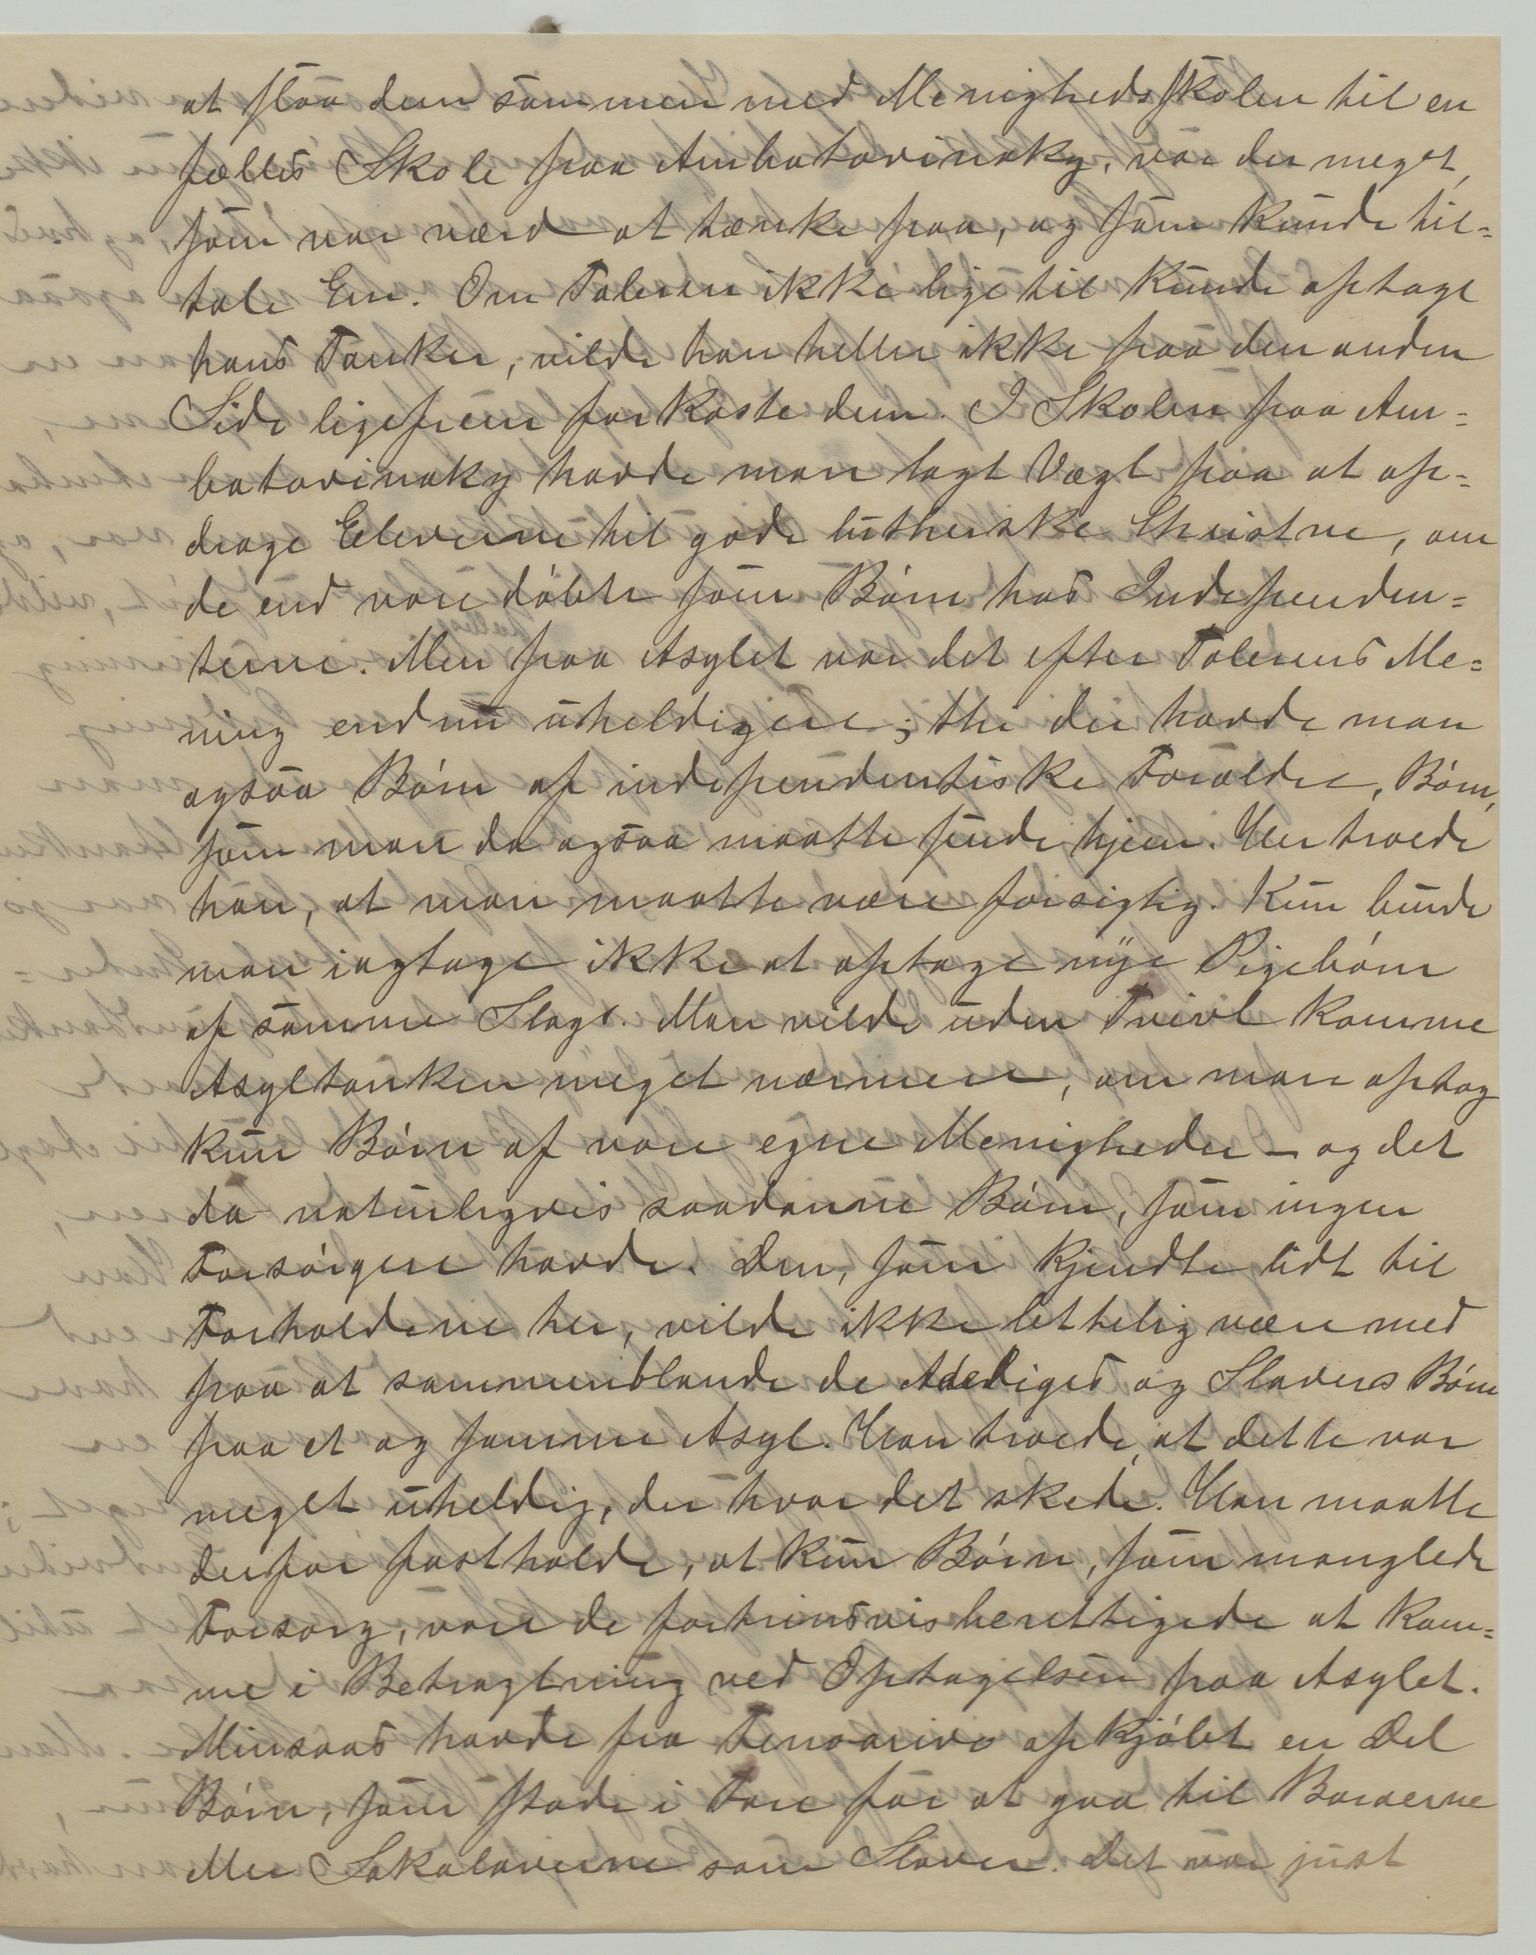 at slaa dem sammen med Menighedsskolen til en
fælles Skole paa Ambatovinaky, var der meget,
som var værd at tænke paa, og som kunde til=
tale Em. Om Taleren ikke lige til kunde optage
hans Tanker, vilde han heller ikke paa den anden
Side ligefrem forkaste dem. I Skolen paa Am=
batovinaky havde man lagt Vægt paa at op=
drage Eleverne til gode lutherske Christne, om
de end vare døbte som Børn hos Independen=
terne. Men paa Asylet var det efter Talerens Me=
ning endnu uheldigere; thi der havde man
ogsaa Børn af independentiske Forældre, Børn,
som man da ogsaa maatte sende hjem. Her troede
han, at man maatte være forsigtig. Kun burde
man iagtage ikke at optage nye Pigebørn
af samme Slags. Man vilde uden Tvivl komme
Asyltanken meget nærmere, om man optog
kun Børn af vore egne Menigheder – og det
da naturligvis saadanne Børn, som ingen
Forsørgere havde. Den, som kjendte lidt til
Forholdene her, vilde ikke lettelig være med
paa at sammenblande de Adeliges og Slavers Børn
paa et og samme Asyl. Han troede, at dette var
meget uheldig, der hvor det skede. Han maatte
derfor fastholde, at kun Børn, som manglede
Forsorg, vare de fortrinsvis berettigede at kom=
me i Betragtning ved Optagelsen paa Asylet.
Minsaas havde fra Fenoarivo opkjøbt en Del
Børn, som stode i Fare for at gaa til Baraerne
eller Sakalaverne som Slaver. Det var just